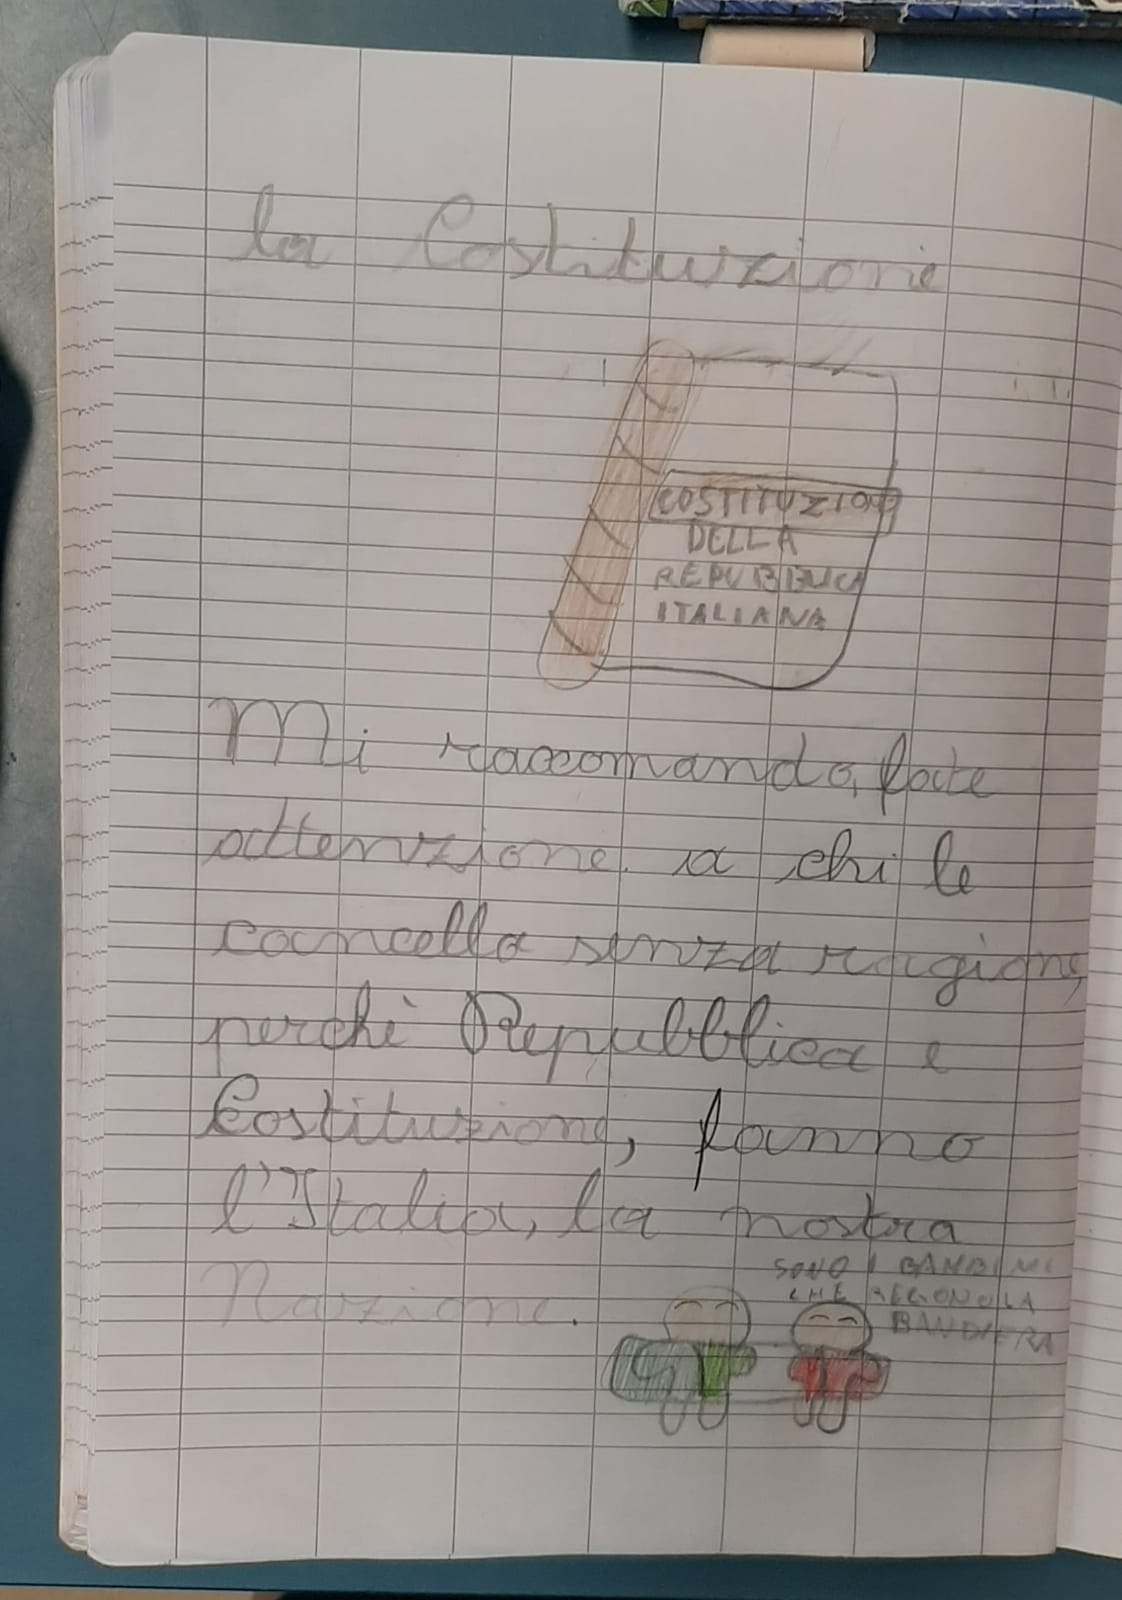 la Costituzione
COSTITUZION
DELLA
REPUBBLICA
ITALIANA
Mi raccomando, fate
attenzione a chi le
cancella senza ragione,
perchè Repubblica e
Costituzione, fanno
l'Italia, la nostra
Nazione.
SONO I BAMBINI
CHE REGONO LA
BANDIERA